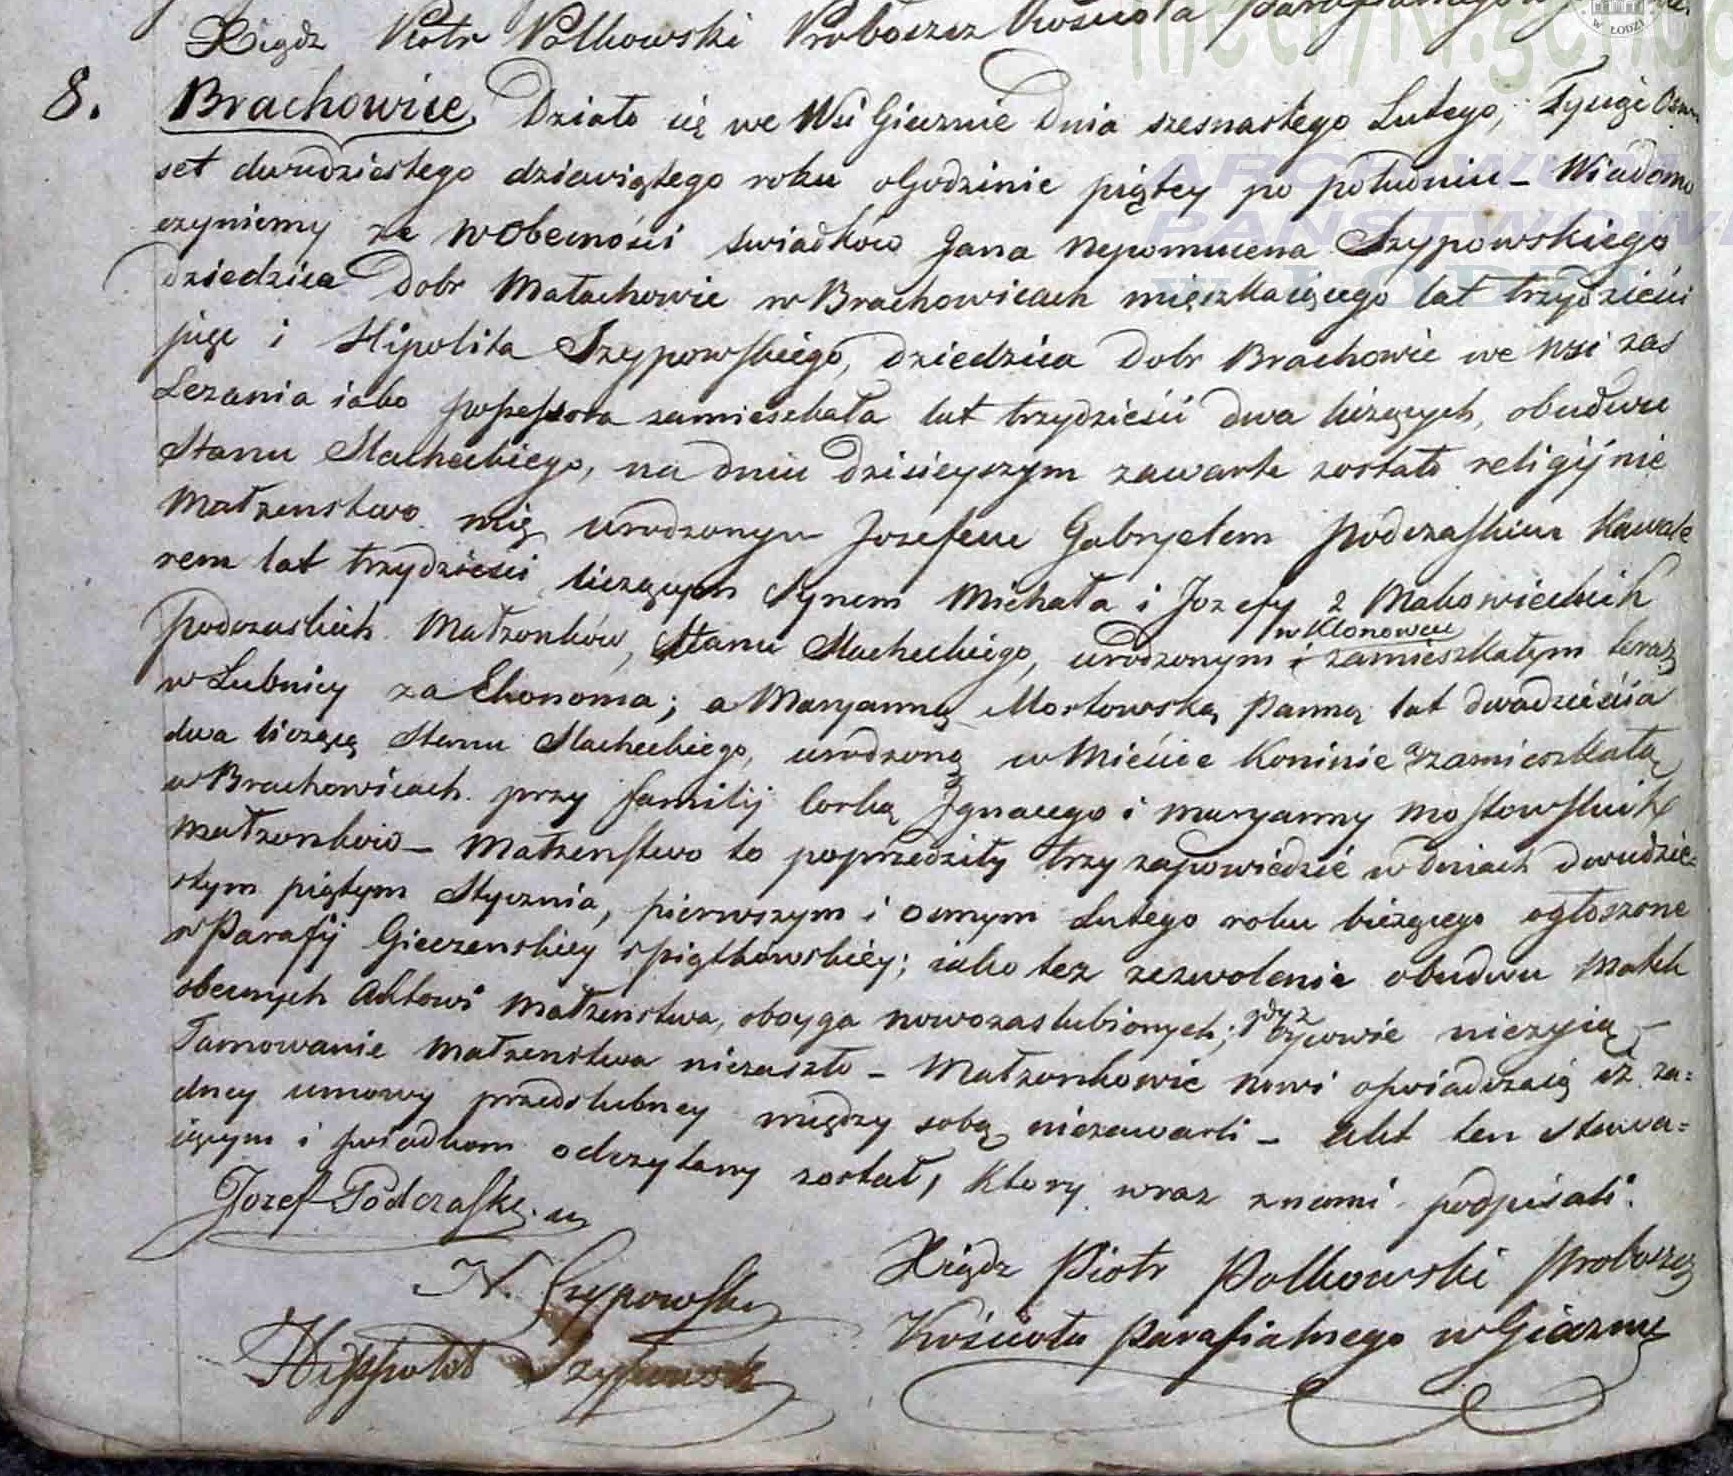 Xiądz Piotr Polkowski Proboszcz Kościoła
8. Brachowice. Działo się we Wsi Giecznie Dnia szesnastego Lutego, Tysiąc Osm
set dwudziestego dziewiątego roku o Godzinie piątey po południu – Wiadomo
czyniemy że w Obecności swiadków Jana Nepomucena Szypowskiego
dziedzica Dobr Małachowic w Brachowicach mięszkaiącego lat trzydzieści
i Hipolita Szypowskiego, dziedzica Dobr Brachowic we wsi zas
Lezania iako possessora zamieszkała lat trzydzieści dwa liczących, obudwu
Stanu Slacheckiego, na dniu dzisieyszym zawarte zostało religijnie
Małzenstwo mię urodzonym Jozefem Gabryelem Podczaskim Kawale
rem lat trzydzieści liczącym Synem Michała i Jozefy z Makowieckich
Podczaskich Małzonków, Stanu Slacheckiego, urodzonym w Klonowcu i zamieszkałym teraz
w Lubnicy za Ekonoma; a Maryanną Mostowską Panną lat dwadzieścia
dwa liczącą Stanu Slacheckiego, urodzoną w Mieście Koninie a zamieszkałą
w Brachowicach przy familij Corką Ignacego i Maryanny Mostowskich
Małzonków – Małzenstwo to poprzedziły trzy zapowiedzie w dniach dwudzie=
stym piątym Stycznia, pierwszym i osmym Lutego roku bieżącego ogłoszone
w Parafij Gieczenskiey i piątkowskiéy; iako tez zezwolenie obudwu Matek
obecnych Aktowi Małzenstwa, oboyga nowozaslubionych; gdyz Oycowie nieżyią –
Tamowanie Małzenstwa niezaszło – Małzonkowie nowi oswiadczaią iż ża=
dney umowy przedslubney między sobą niezawarli – akt ten stawa=
iącym i swiadkom odczytany został, Ktory wraz z nami podpisali.
Jozef Podczaski
N. Szypowski
Hippolit Szypowski
Xiądz Piotr Polkowski Proboszcz
Kościoła Parafialnego w Giecznie
ARCHIWUM
PAŃSTWOWE
W ŁODZI
W ŁODZI